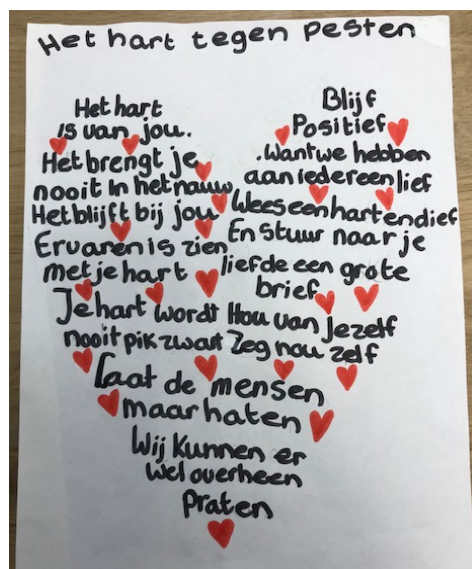 Het hart tegen Pesten
Het hart
is van jou.
Het brengt je
nooit in het nauw
Het blijft bij jou
Ervaren is zien
met je hart
Je hart wordt
nooit pikzwart
Blijf
Positief
. Want we hebben
aan iedereen lief
Wees een hartendief
En stuur naar je
liefde een grote
brief
Hou van Jezelf
Zeg nou zelf
Laat de mensen
maar haten
Wij Kunnen er
wel overheen
Praten